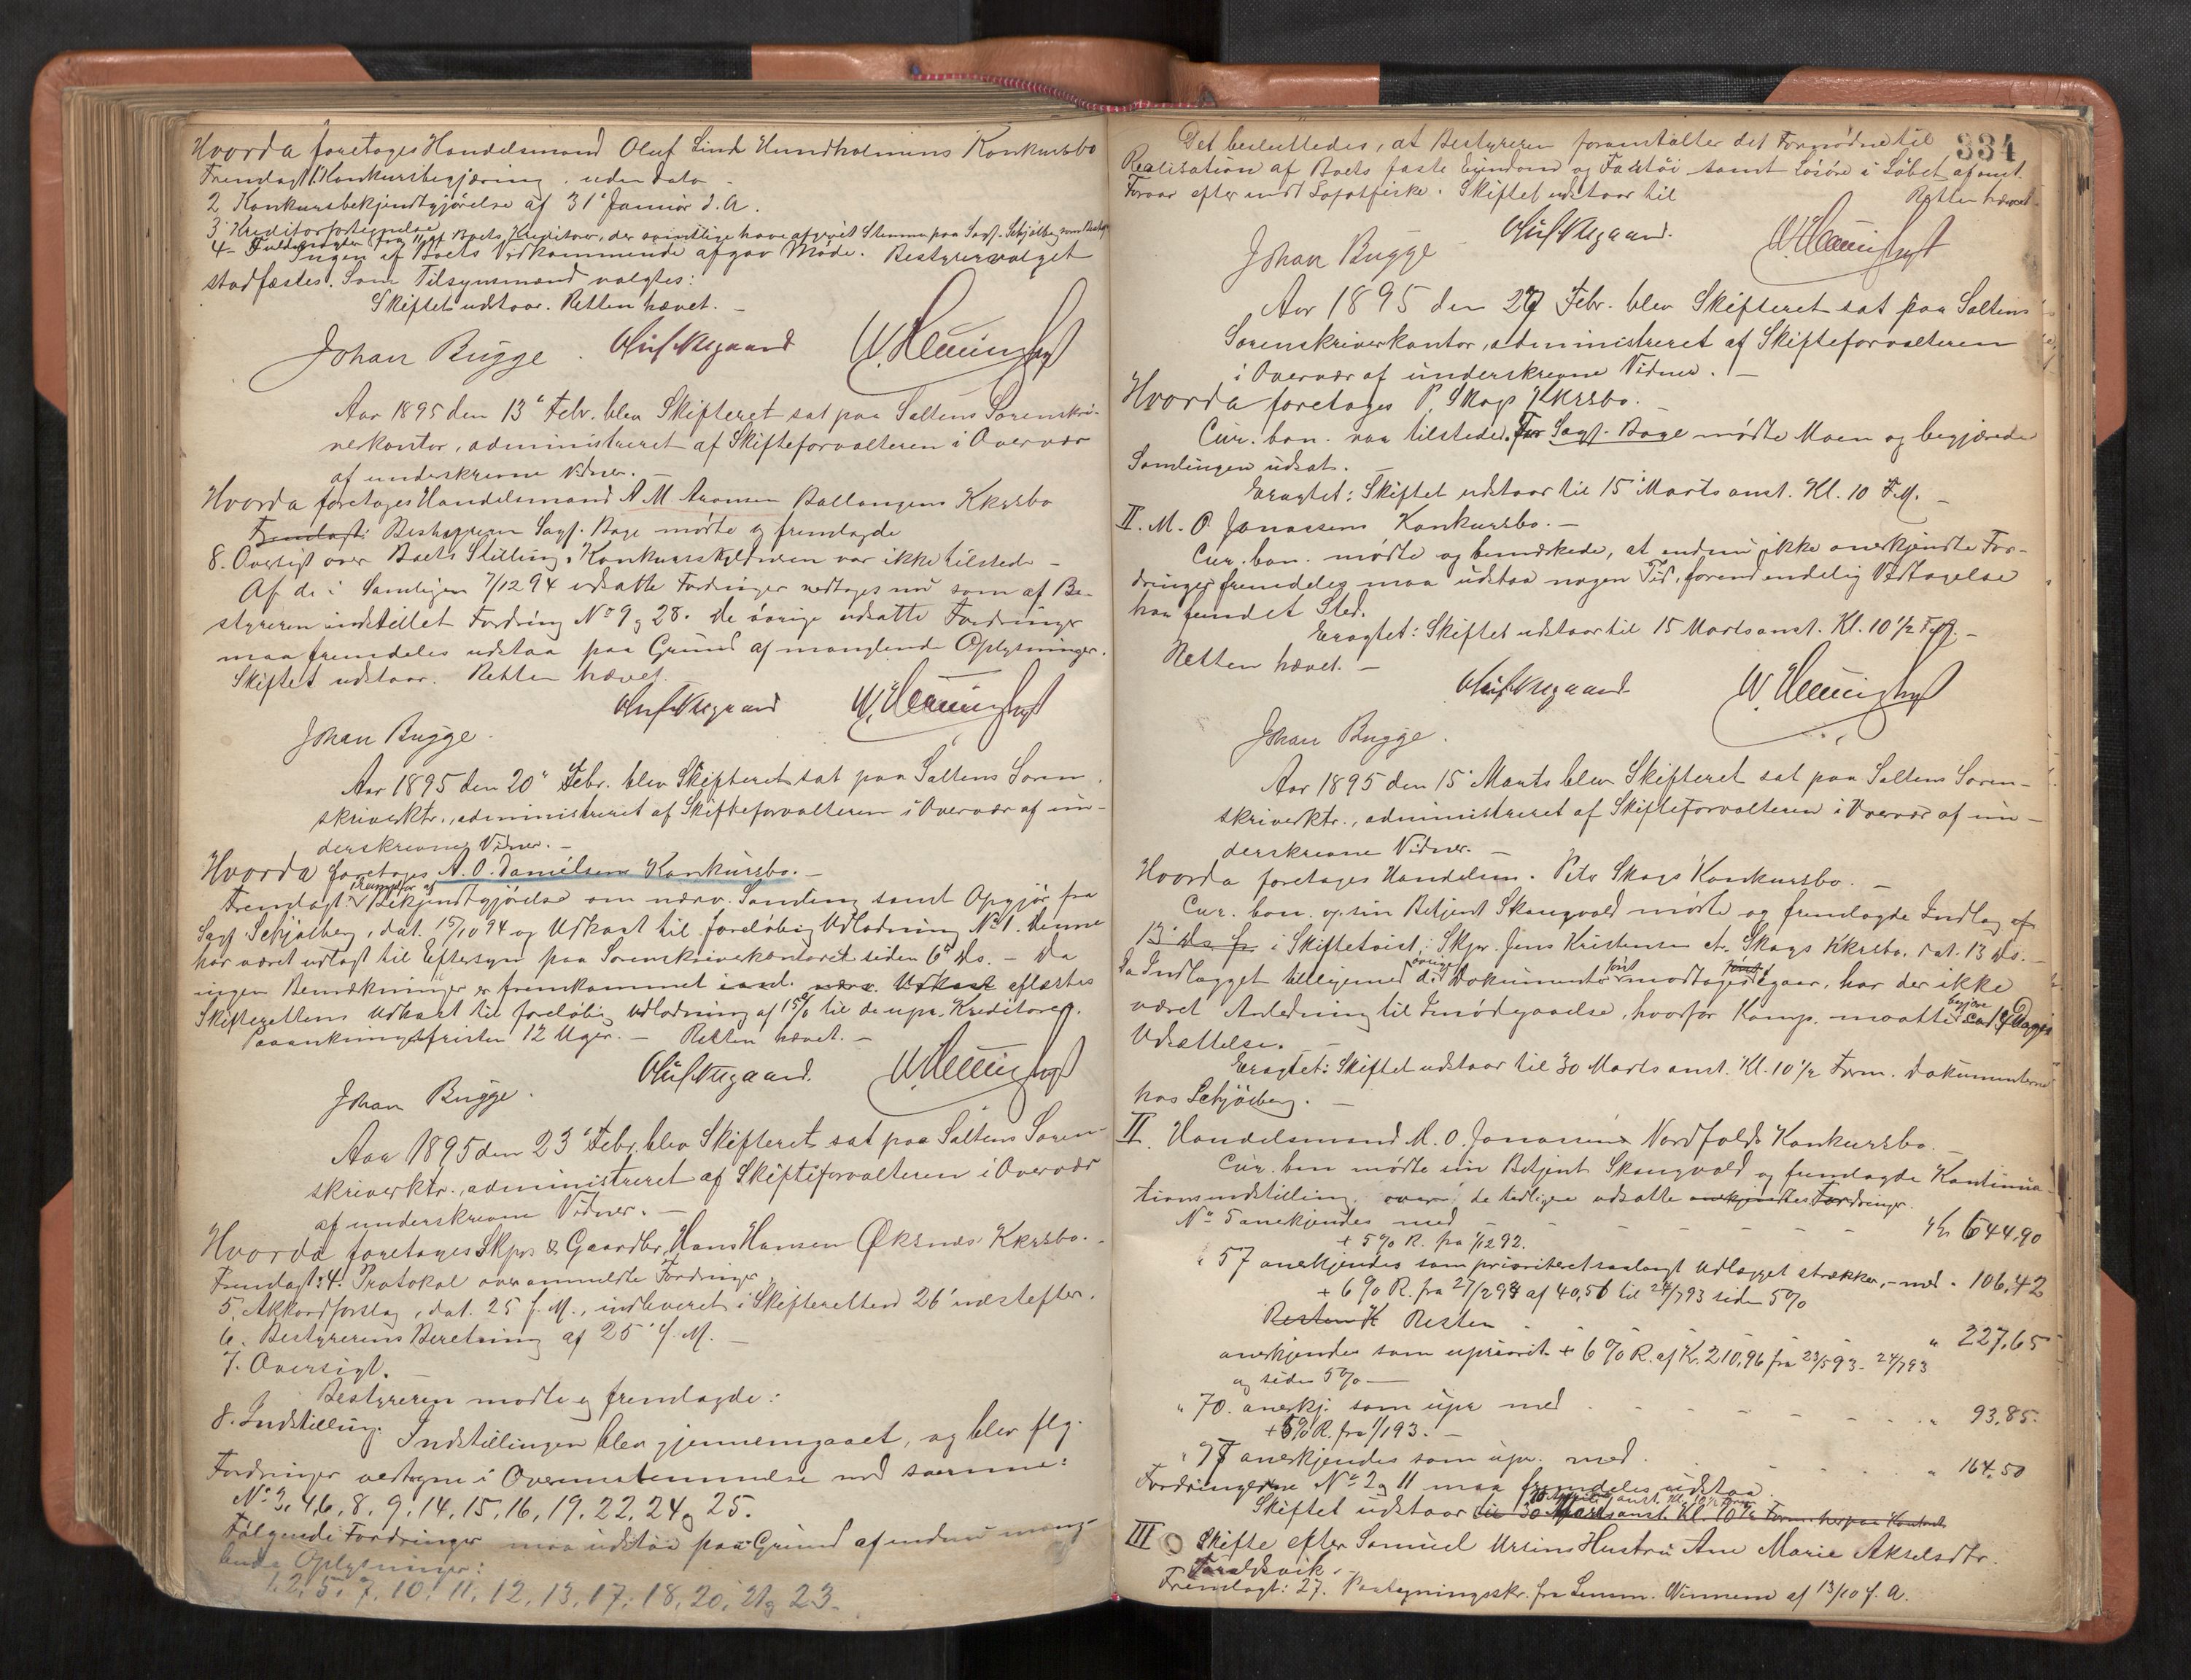 Hvorda foretoges Handelsmand Oluf Lind Hundholmens Konkursbo
Fremlagt: 1 Konkursbegjæring uden Dato –
2 Konkursbekjendtgjørelse af 31' Januar d. A.
3 Kreditorfortegnelse
4 Fuldmagter fra 11 af Boets Kreditorer, der samtlige have afgivet Stemme paa Sagf. Schjølberg som
Ingen af Boets Vedkommende afgav Møde. Bestyrervalget
stadfæstes. Som Tilsynsmænd valgtes:
Skiftet udstaar. Retten hævet. –
Johan Bugge.
Aar 1895 den 13' Febr. blev Skifteret sat paa Saltens Sorenskri-
verkontor, administreret af Skifteforvalteren i Overvær
af underskrevne Vidner. –
Hvorda foretoges Handelsmand A M Aronsen Ballangens Kkrsbo
Fremlagt: Bestyreren Sagf. Bage mødte og fremlagde
8. Oversigt over Boets Stilling. Konkursskyldneren var ikke tilstede –
Af de i Samlingen 7/12 94 udsatte Fordringer vedtoges nu som af Be-
styreren indstillet Fordring No 9 og 28. De øvrige udsatte Fordringer
maa fremdeles udstaa paa Grund af manglende Oplysninger.
Skiftet udstaar. Retten hævet.
Johan Bugge.
Aar 1895 den 20' Febr. blev Skifteret sat paa Saltens Soren
skriverktr., administreret af Skifteforvalteren i Overvær af un-
derskrevne Vidner. –
Hvorda foretoges A. O. Danielsens Konkursbo. –
Fremlagt Bekjendtgjørelse om nærv. Samling samt Opgjør fra
Sagf. Schjølberg, dat. 15/10 94 og Udkast til foreløbig Udlodning No 1. Denne
har været udlagt til Eftersyn paa Sorenskriverkontoret siden 6' ds. – Da
ingen Bemærkninger er fremkommet Udkast oplæstes
Skifterettens Udkast til foreløbig Udlodning af 15% til de upr. Kreditorer.
Paaankningsfristen 12 Uger. – Retten hævet. –
Johan Bugge.
Aar 1895 den 23' Febr. blev Skifteret sat paa Saltens Soren-
skriverktr., administreret af Skifteforvalteren i Overvær
af underskrevne Vidner. –
Hvorda foretoges Skprs & Gaardbr. Hans Hansen Øksnes Kkrsbo. –
Fremlagt: 4. Protokol over anmeldte Fordringer
5. Akkordforslag, dat. 25 f. M., indleveret i Skifteretten 26' næstefter.
6. Bestyrerens Beretning af 25' f. M. –
7. Oversigt.
Bestyreren mødte og fremlagde:
8. Indstilling. Indstillingen blev gjennemgaaet, og blev flg.
Fordringer vedtagne i Overensstemmelse med samme:
No 3, 4, 6, 8, 9, 14, 15, 16, 19, 22, 24 og 25.
Følgende Fordringer maa udstaa paa Grund af endnu mang-
lende Oplysninger:
1, 2, 5, 7, 10, 11, 12, 13, 17, 18, 20, 21 og 23.
334
Det besluttedes, at Bestyreren foranstalter det Fornødne til
Realisation af Boets faste Eiendom og Fartøi samt Løsøre i Løbet af anst.
Foraar efter endt Lofotfiske. Skiftet udstaar til
Retten hævet.
Johan Bugge
Aar 1895 den 27 Febr. blev Skifteret sat paa Saltens
Sorenskriverkontor, administreret af Skifteforvalteren
i Overvær af underskrevne Vidner. –
Hvorda foretoges P. Skags Kkrsbo. –
Cur. bon. var tilstede. For Sagf. Bage mødte Moen og begjærede
Samlingen udsat. –
Eragtet: Skiftet udstaar til 15 Marts anst. Kl. 10 F.M. –
II. M. O. Jonassens Konkursbo. –
Cur. bon. mødte og bemærkede, at endnu ikke anerkjendte For-
dringer fremdeles maa udstaa nogen Tid, forend endelig Vedtagelse
har fundet Sted.
Eragtet: Skiftet udstaar til 15 Marts anst. Kl. 10 1/2 F.M. –
Retten hævet. –
Johan Bugge.
Aar 1895 den 15' Marts blev Skifteret sat paa Saltens Soren-
skriverktr., administreret af Skifteforvalteren i Overvær af un-
derskrevne Vidner. –
Hvorda foretoges Handelsm. Peter Skags Konkursbo. –
Cur. bon. ved sin Betjent Skaugvold mødte og fremlagde Indlæg af
13' ds. i Skiftetvist: Skpr. Jens Kristensen ct. Skags Kkrsbo, dat. 13 ds. –
Da Indlægget tilligemed de øvrige Dokumenter først modtoges igaar, har der ikke
været Anledning til Imødegaaelse, hvorfor Komp. maatte begjære 14 Dages
Udsættelse. –
Eragtet: Skiftet udstaar til 30 Marts anst. Kl. 10 1/2 Form. Dokumenterne
hos Schjølberg. –
II. Handelsmand M. O. Jonassens Nordfold Konkursbo. –
Cur. bon mødte ved Betjent Skaugvold og fremlagde Kontinua-
tionsindstilling over de tidligere udsatte anerkjendte Fordringer.
No 5 anerkjendes med – – – – – Kr 644,90
+ 5% R. fra 1/12 92.
" 57 anerkjendes som prioriteret saalangt Udlægget strækker, – med " 106,42
+ 6% R. fra 27/2 93 af 40,51 til 24/7 93 siden 5%
Resten K Resten – " 227,65
anerkjendes som upriorit. + 6% R. af Kr. 210,96 fra 23/5 93 – 24/7 93
og siden 5% –
" 70. anerkj. som upr med – – – – " 93,85.
+ 5% R. fra 1/1 93. –
" 77 anerkjendes som upr. med. " 164,50
Fordringerne No 2 og 11 maa fremdeles udstaa.
Skiftet udstaar til 30 Marts anst. Kl. 10 1/2 Form. her paa Kontoret
III Skifte efter Samuel Ursins Hustru Ane Marie Akselsdtr.
Taraldsvik. –
Fremlagt: 27. Paategningsskr. fra Lensm. Winnem af 13/10 f. A.